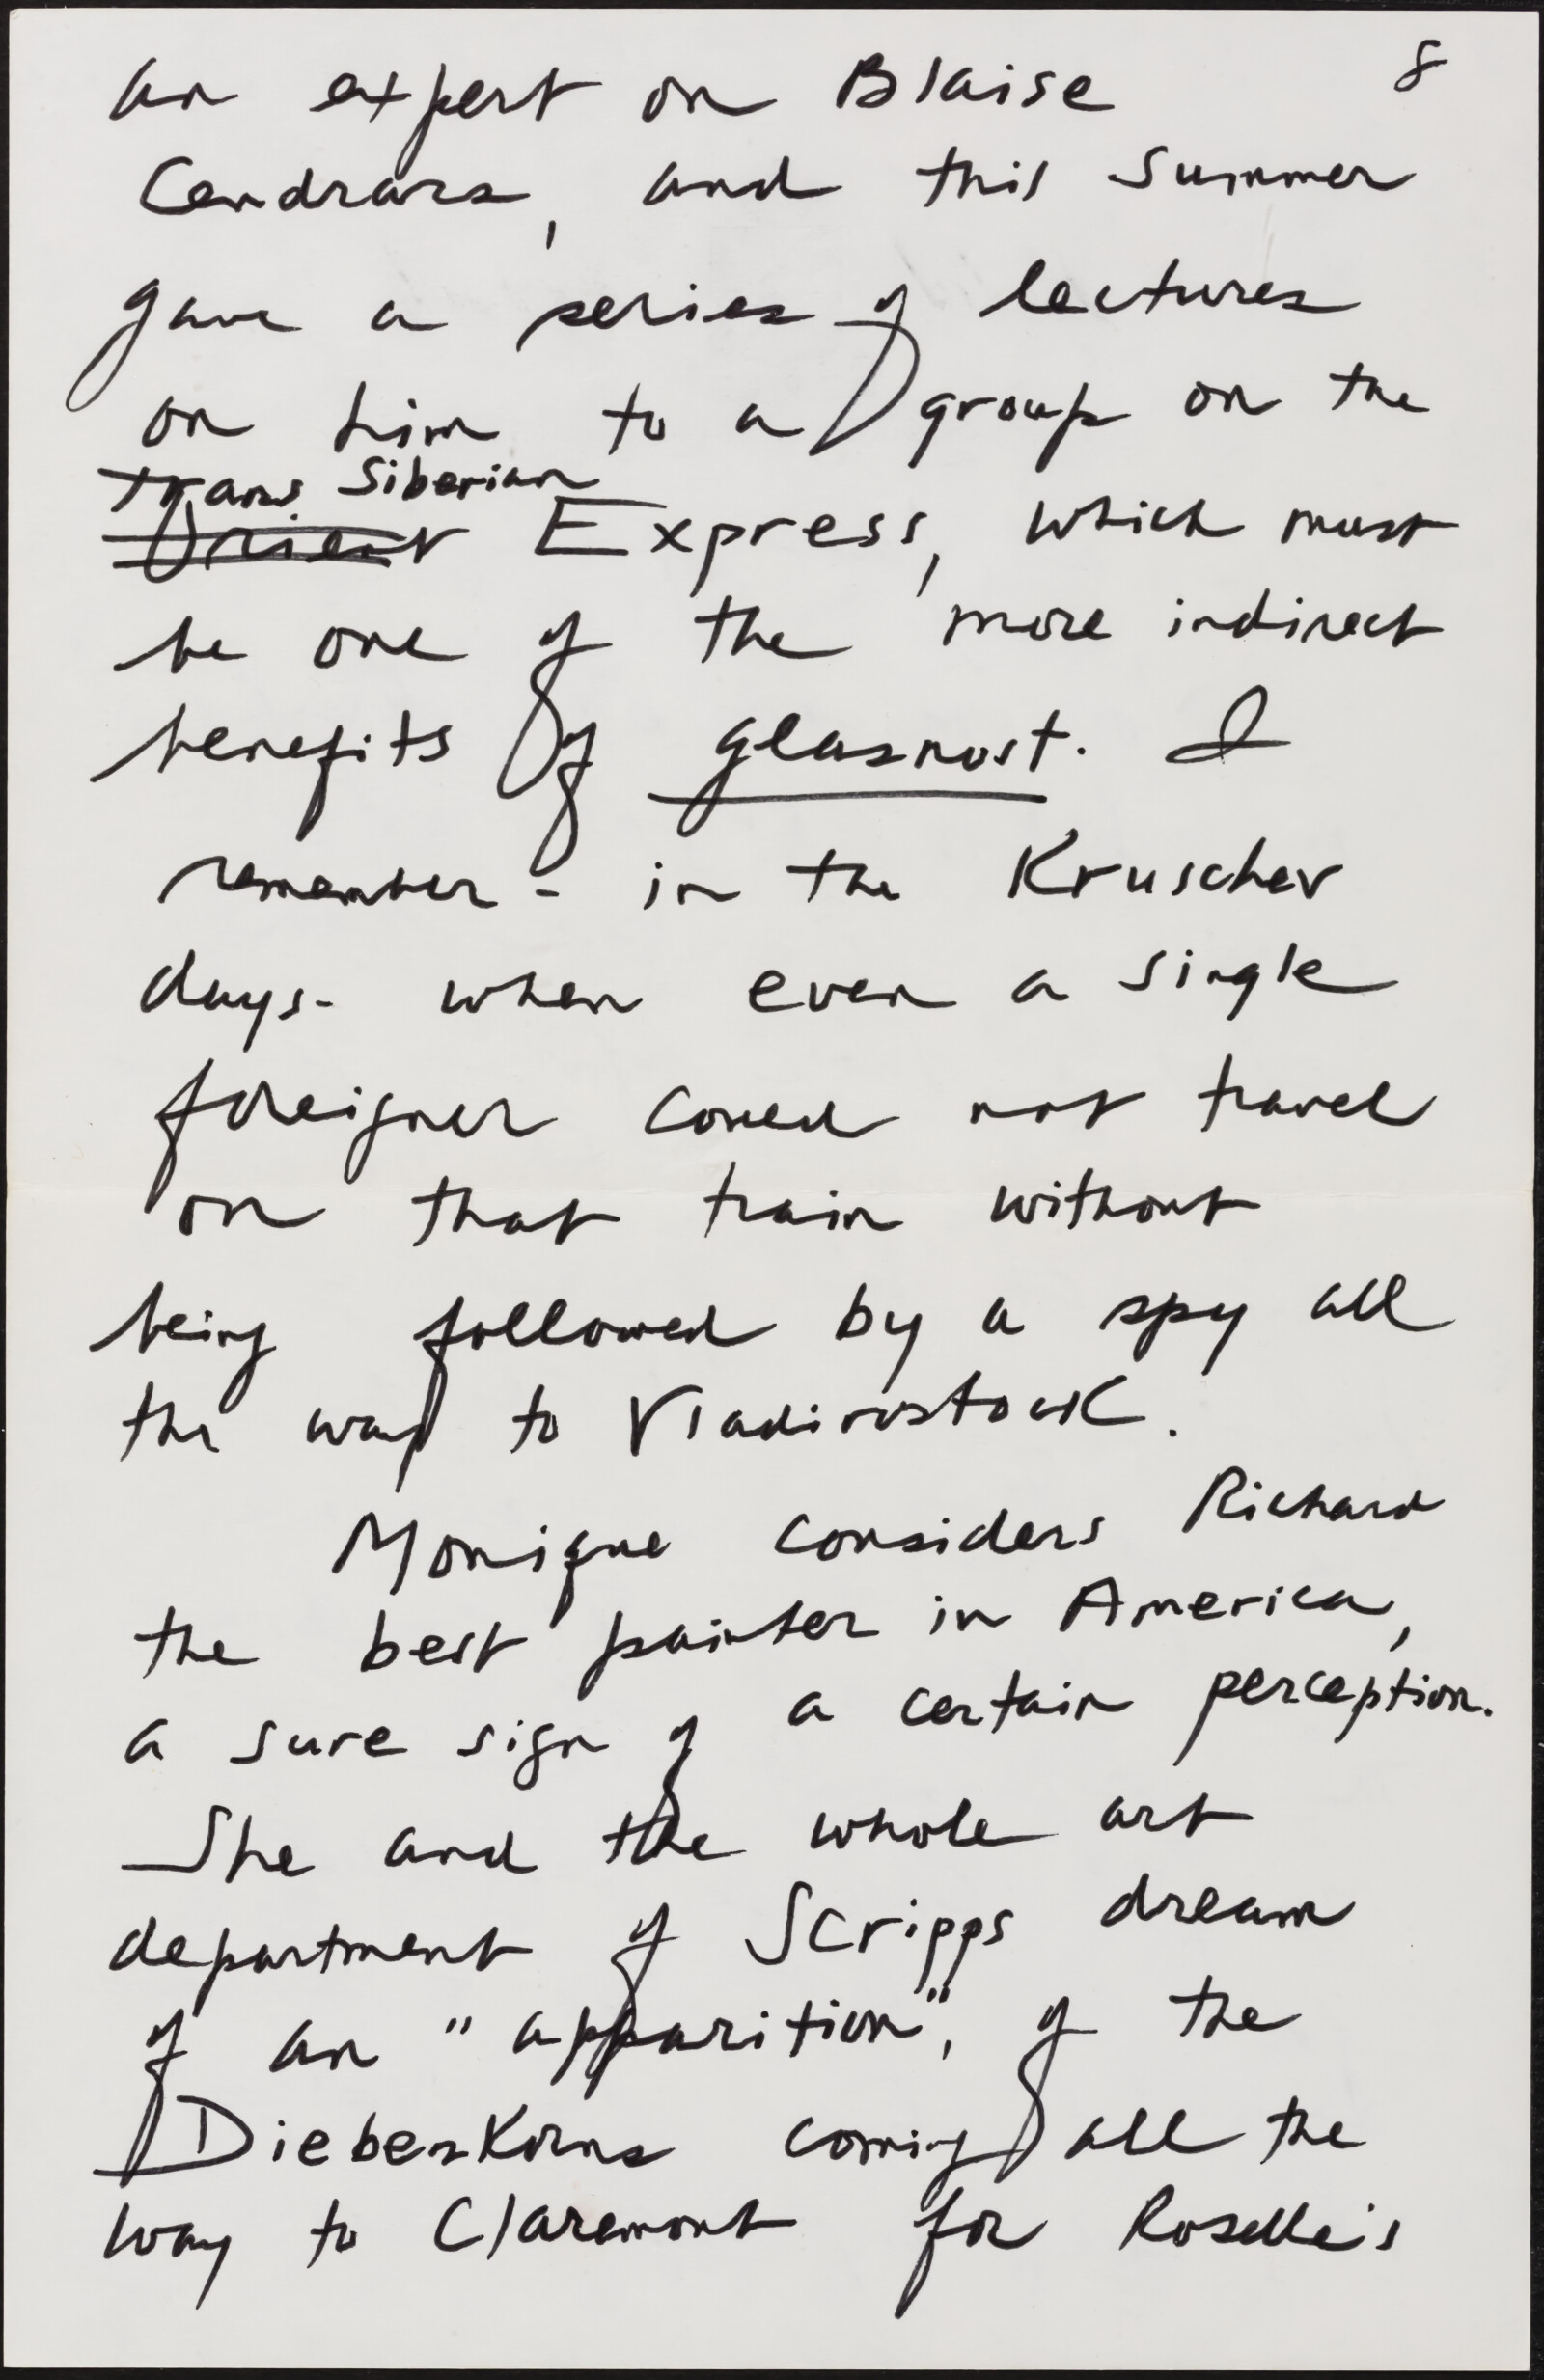 an expert on Blaise 8
Cendrars, and this Summer
gave a series of lectures
on him to a group on the
trans Siberian
Orient Express, which must
be one of the more indirect
benefits of glasnost. I
remember - in the Kruschev
days - when even a single
foreigner could not travel
on that train without
being followed by a spy all
the way to Vladivostock.
Monique considers Richard
the best painter in America,
a sure sign of a certain perception.
She and the whole art
department of Scripps dream
of an "apparition", of the
Diebenkorns coming all the
way to Claremont for Roselle's